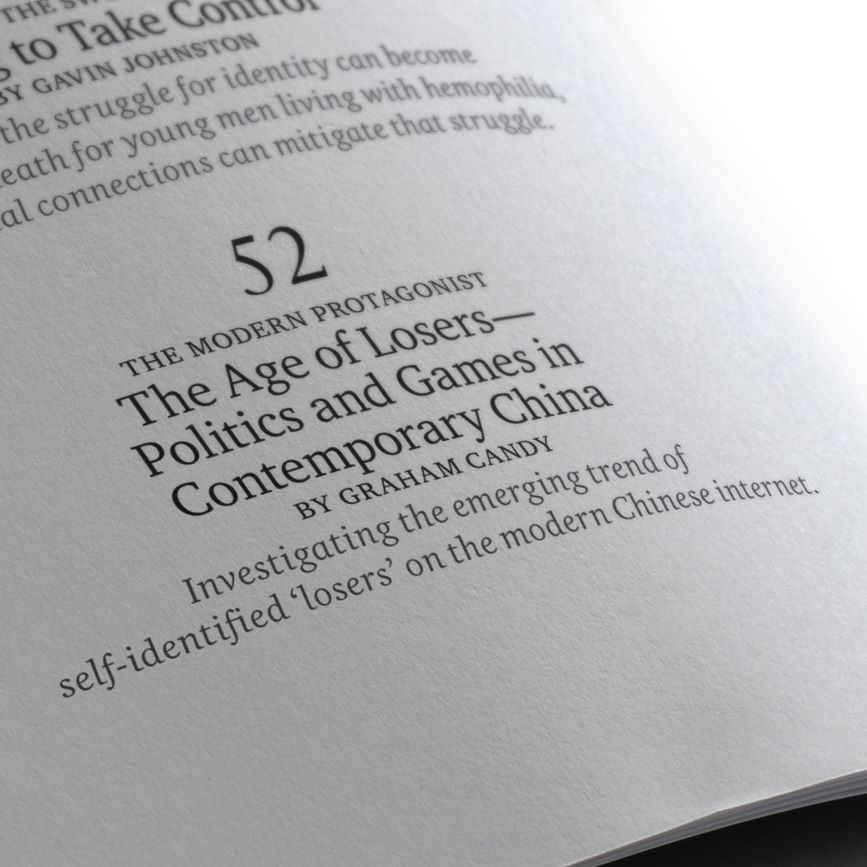 THE
to Take Control
BY GAVIN JOHNSTON
the struggle for identity can become
for young men living with hemophilia,
connections can mitigate that struggle.
52
THE MODERN PROTAGONIST
The Age of Losers—
Politics and Games in
Contemporary China
BY GRAHAM CANDY
Investigating the emerging trend of
self-identified ‘losers’ on the modern Chinese internet.